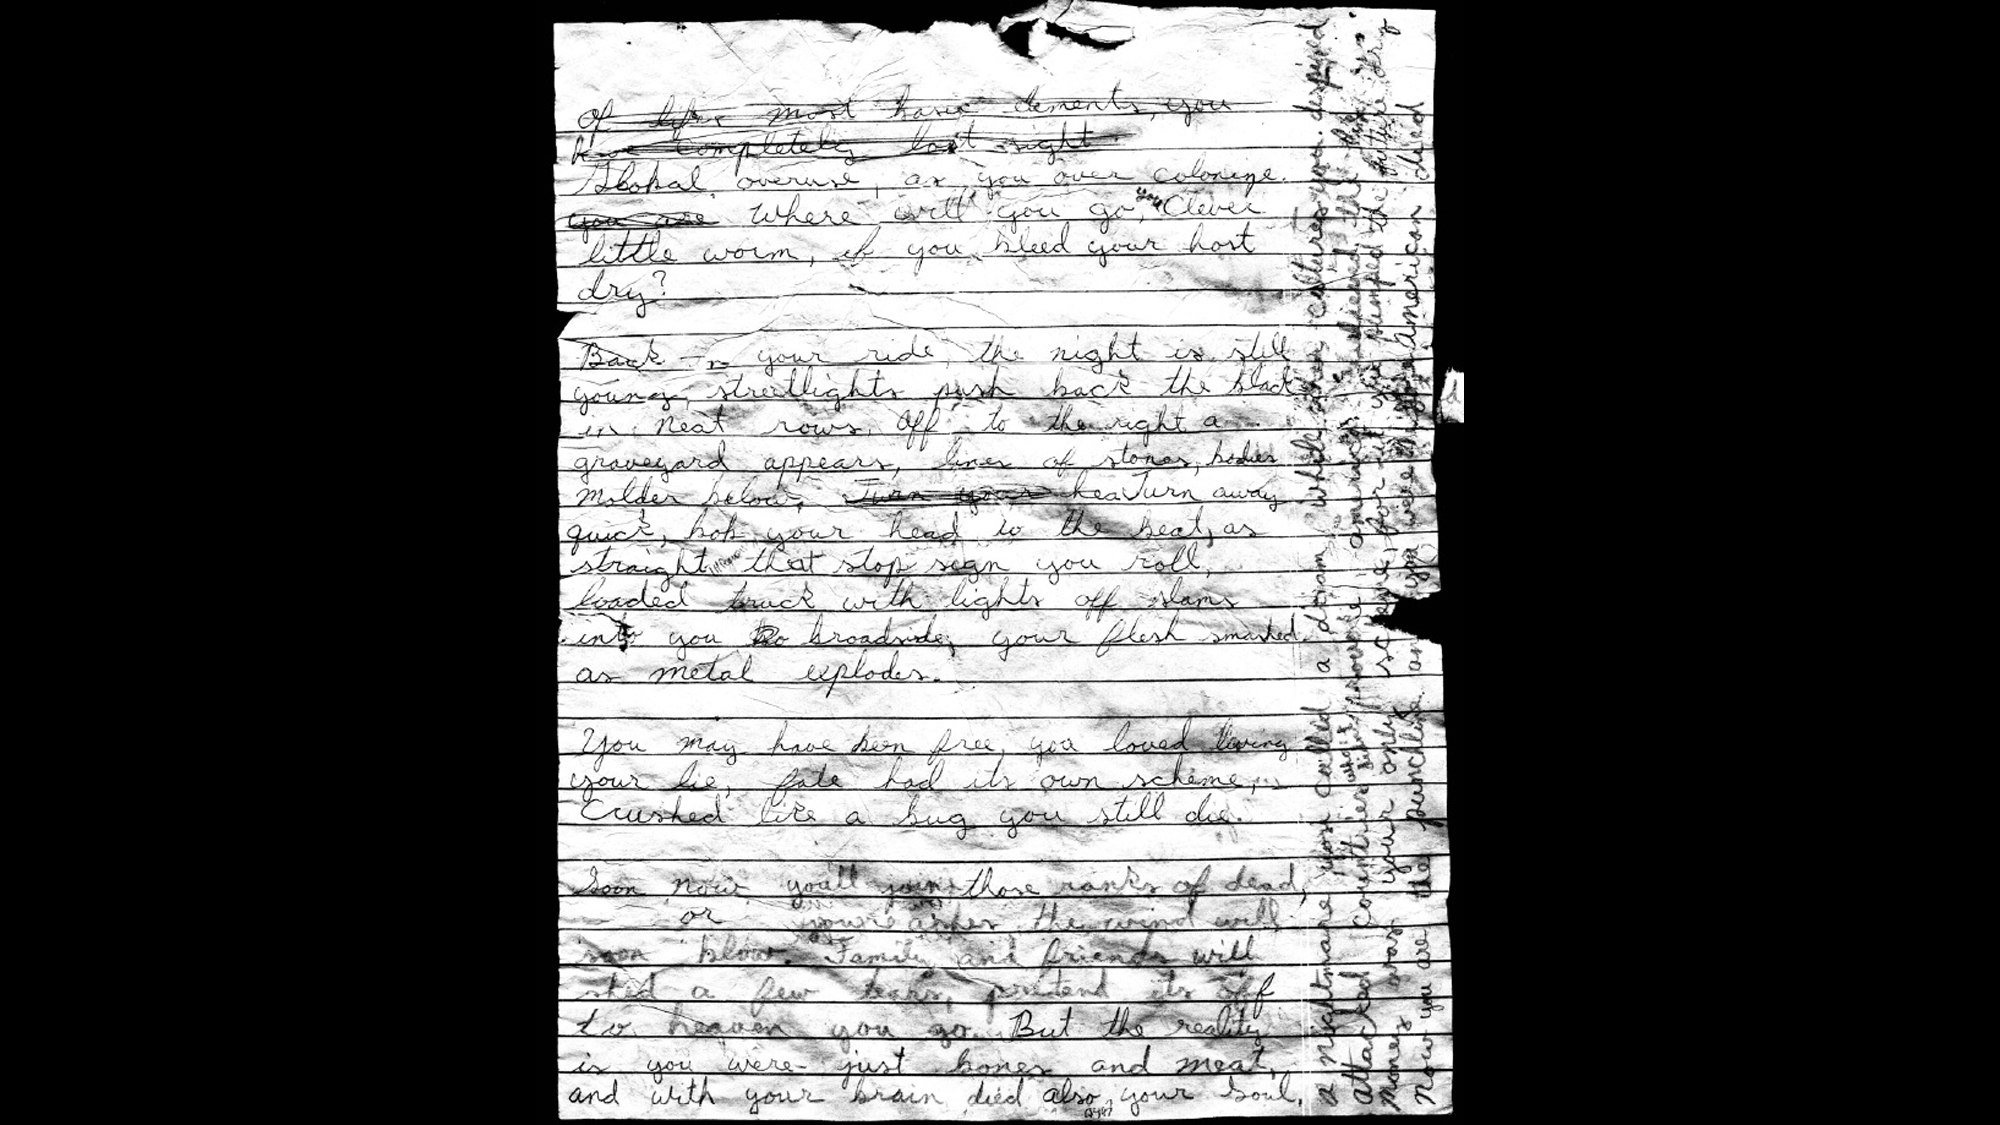 Of lifes most basic elements, you
have completely lost sight
Global overuse, as you over colonize.
you are Where will you go, you Clever
little worm, if you bleed your host
dry?
Back in your ride, the night is still
young, streetlights push back the black
in neat rows, off to the right a
graveyard appears, lines of stones, bodies
molder below, Turn your hea Turn away
quick, bob your head to the beat, as
straight through that stop sign you roll,
loaded truck with lights off slams
into you broadside, your flesh smashed
as metal explodes.
You may have been free, you loved living
your lie, fate had its own scheme,
Crushed like a bug you still die.
Soon now, you'll join those ranks of dead,
or your ashes the wind will
soon blow. Family and friends will
shed a few tears, pretend its off
to heaven you go. But the reality
is you were just bones and meat,
and with your brain died also your soul.
a nightmare you called a dream, while other cultures you despised
attacked countries who didn't provoke america
money was your only as you pumped the future dry
Now you are the punchline and you were american died